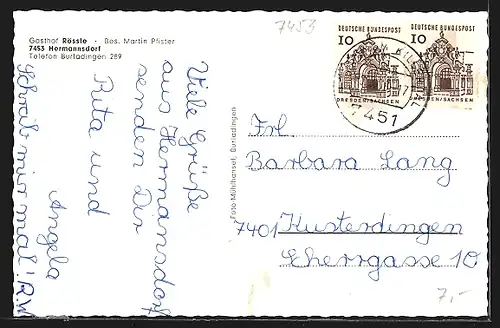 Gasthof Rössle - Bes. Martin Pfister
7453 Hermannsdorf
Telefon Burladingen 289
7453
Viele Grüße
aus Hermansdorf
senden Dir
Rita und
Angela
Schreib mir mal! R.W.
Foto-Mühlhansel, Burladingen
DEUTSCHE BUNDESPOST
10
DRESDEN/SACHSEN
DEUTSCHE BUNDESPOST
10
DRESDEN/SACHSEN
7451
Frl
Barbara Lang
7401 Kusterdingen
Eherrgasse 10
7,-